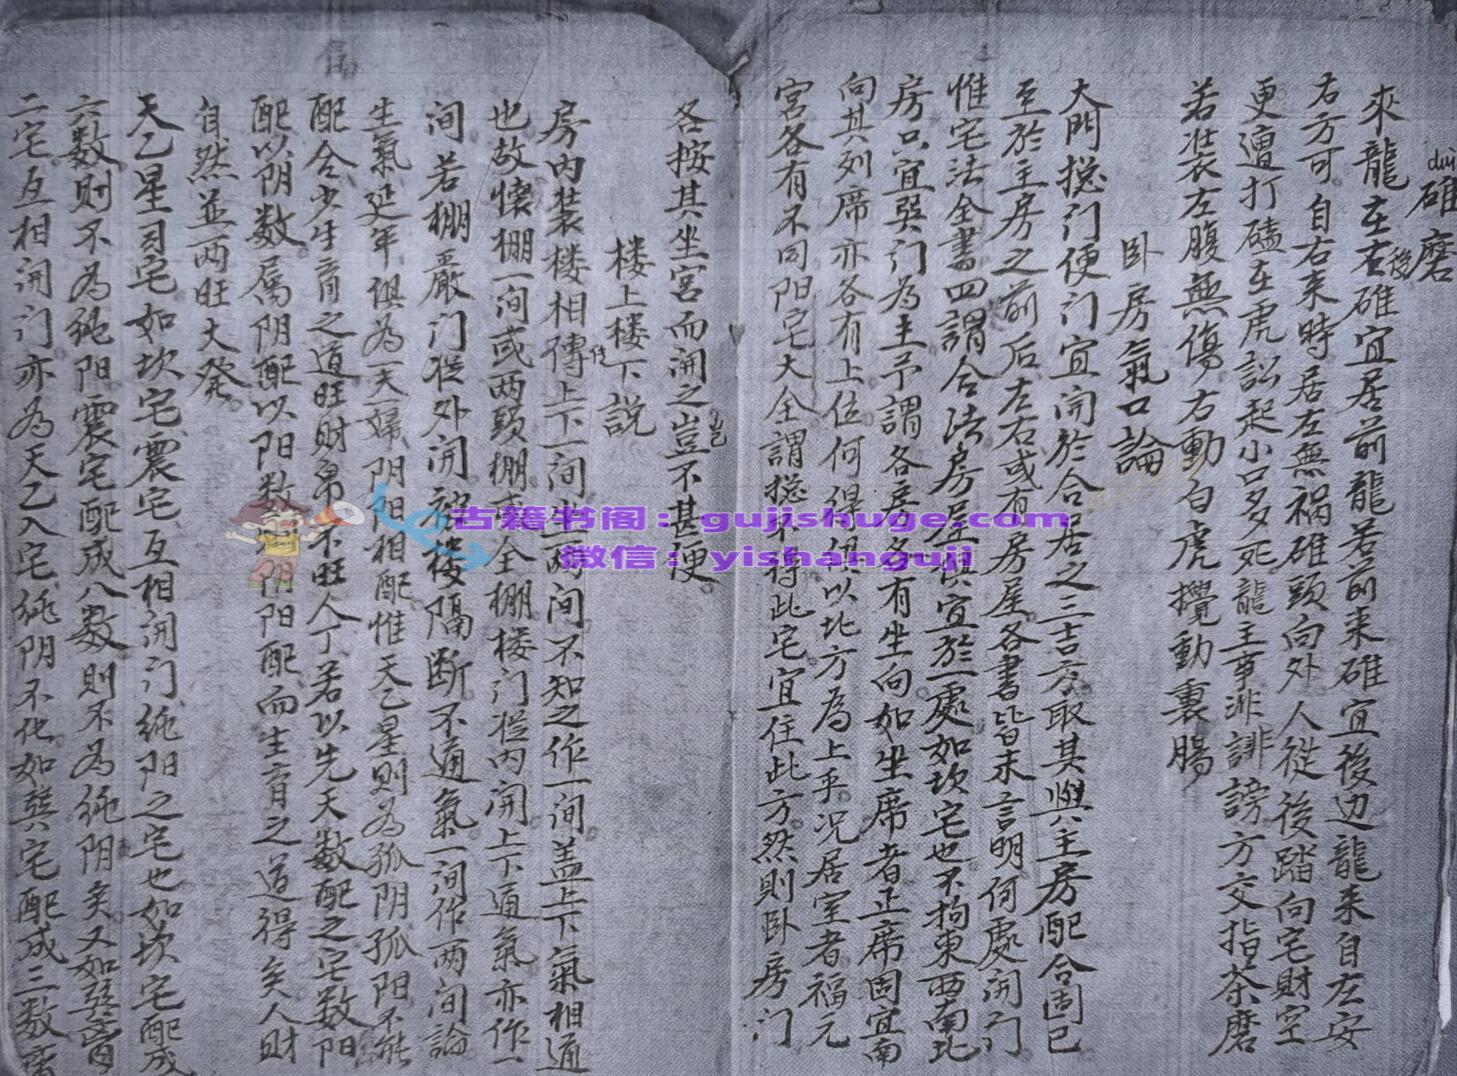 碓磨
duì
來龍左右碓宜居前龍若前来碓宜後边龍来自左安
後
右方可自右来時居左無祸碓頭向外人從後踏向宅財空
更遭打磕在虎訟起小口多死龍主事非誹謗方交指茶磨
若裝左腹無傷右動白虎攪動裏腸
卧房氣口論
大門摠门便门宜開於合居之三吉方取其與主房配合固已
至於主房之前后左右或有房屋各書皆未言明何處開门
惟宅法全書四謂合法房屋宜於一處如坎宅也不拘東西南北
房只宜巽门為主予謂各房各有坐向如坐席者正席固宜南
向其列席亦各有上位何得以北方為上乎况居室者福元
宮各有不同阳宅大全謂摠不得此宅宜住此方然則卧房门
各按其坐宮而開之豈不甚便
岂
楼上楼下説
房内装楼相傳上下一间出两间不知之作一间盖上下氣相通
传
也故懷棚一间或两頭棚或全棚楼门從内開上下通氣亦作一
间若棚嚴门從外開被楼隔断不通氣一间作两间論
生氣延年俱為一夫一婦阴阳相配惟天乙星則為孤阴孤阳不能
配合少生育之道旺財帛不旺人丁若以先天数配之宅数阳
配以阴数属阴配以阳数阴阳配而生育之道得矣人財
自然並两旺大發
天乙星司宅如坎宅震宅互相開门純阳之宅也如坎宅配成
六数則不為純阳震宅配成八数則不為純阴矣又如巽
二宅互相開门亦為天乙入宅純阴不化如巽宅配成三数
古籍书阁：gujishuge.com
微信：yishanguji